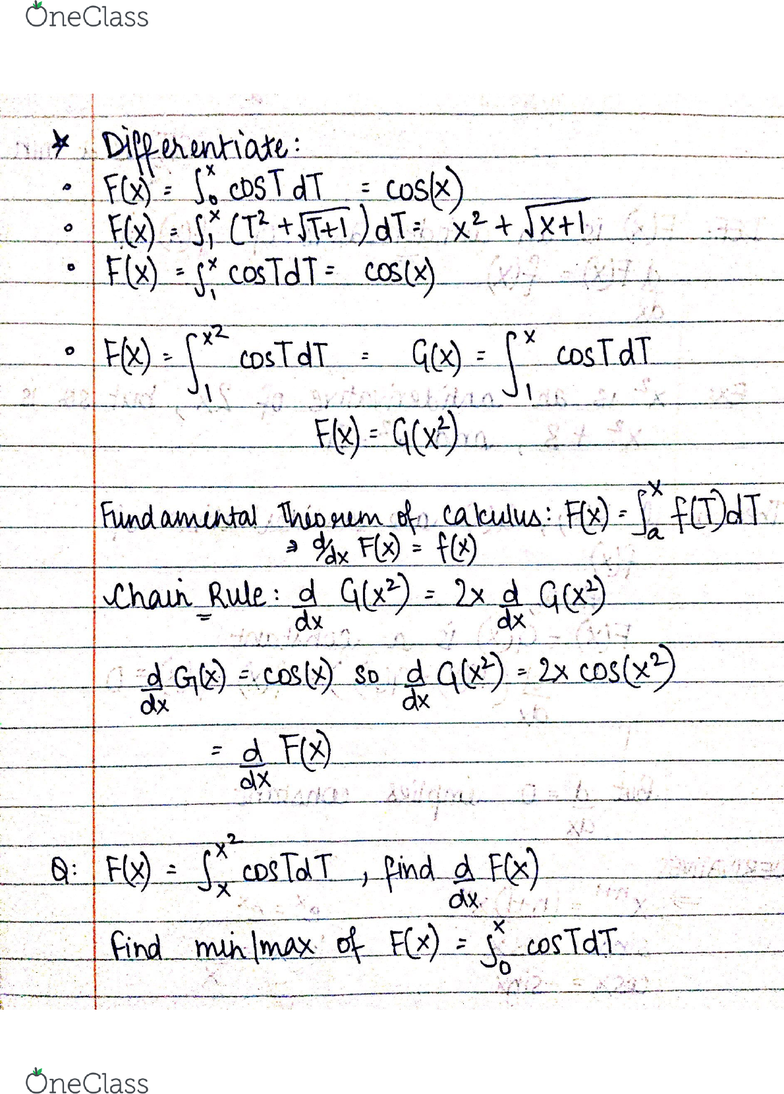 OneClass
* Differentiate:
• F(x) = ∫₀ˣ cosT dT = cos(x)
• F(x) = ∫₁ˣ (T² + √T+1) dT = x² + √x+1
• F(x) = ∫₁ˣ cosTdT = cos(x)
• F(x) = ∫₁^x² cosTdT = G(x) = ∫₁ˣ cosTdT
F(x) = G(x²)
Fundamental Theorem of calculus: F(x) = ∫ₐˣ f(T)dT
⇒ d/dx F(x) = f(x)
Chain Rule: d/dx G(x²) = 2x d/dx G(x²)
d/dx G(x) = cos(x) so d/dx G(x²) = 2x cos(x²)
= d/dx F(x)
Q: F(x) = ∫ₓ^x² cosTdT, find d/dx F(x)
find min/max of F(x) = ∫₀ˣ cosTdT
OneClass